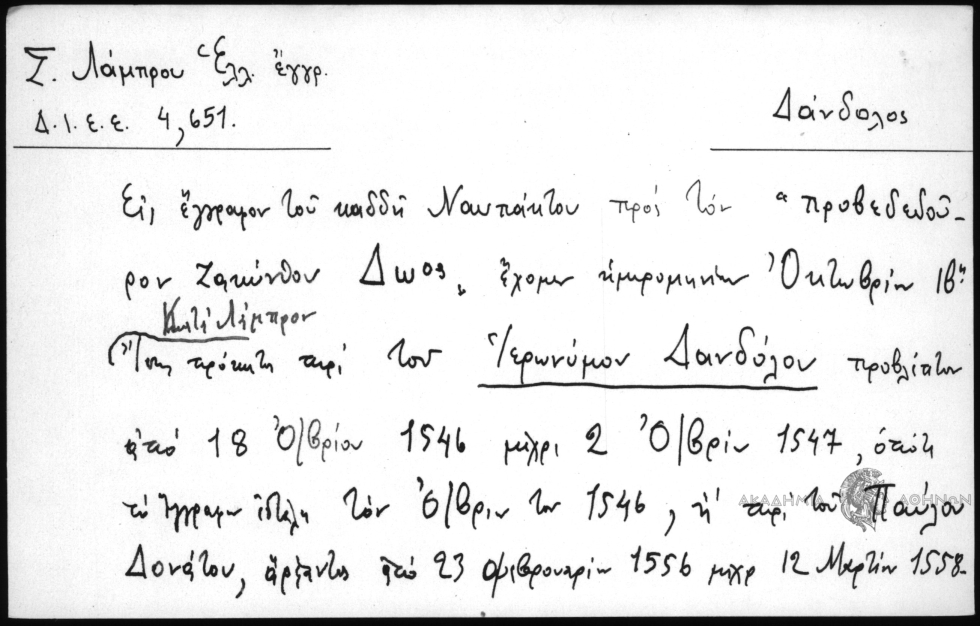 Σ. Λάμπρου Ἑλλ. ἔγγρ.
Δ.Ι.Ε.Ε. 4,651.
Δάνδολος
Εἰς ἔγγραφον τοῦ καδδῆ Ναυπάκτου πρὸς τὸν "προβεδεδοῦ-
ρον Ζακύνθου Δωος, ἔχομεν ἡμερομηνίαν Ὀκτωβρίου ΙΒ"
Κατὰ Λάμπρον
Ἴσως πρόκειται περὶ τοῦ Ἱερωνύμου Δανδόλου προβλέπτου
ἀπὸ 18 Ὀ/βρίου 1546 μέχρι 2 Ὀ/βρίου 1547, ὁπότε
τὸ ἔγγραφον ἐστάλη τὸν Ὀ/βριον του 1546, ἢ περὶ τοῦ Παύλου
Δονάτου, ἄρξαντος ἀπὸ 23 Φεβρουαρίου 1556 μέχρ 12 Μαρτίου 1558.
ΑΚΑΔΗΜΙΑ ΑΘΗΝΩΝ